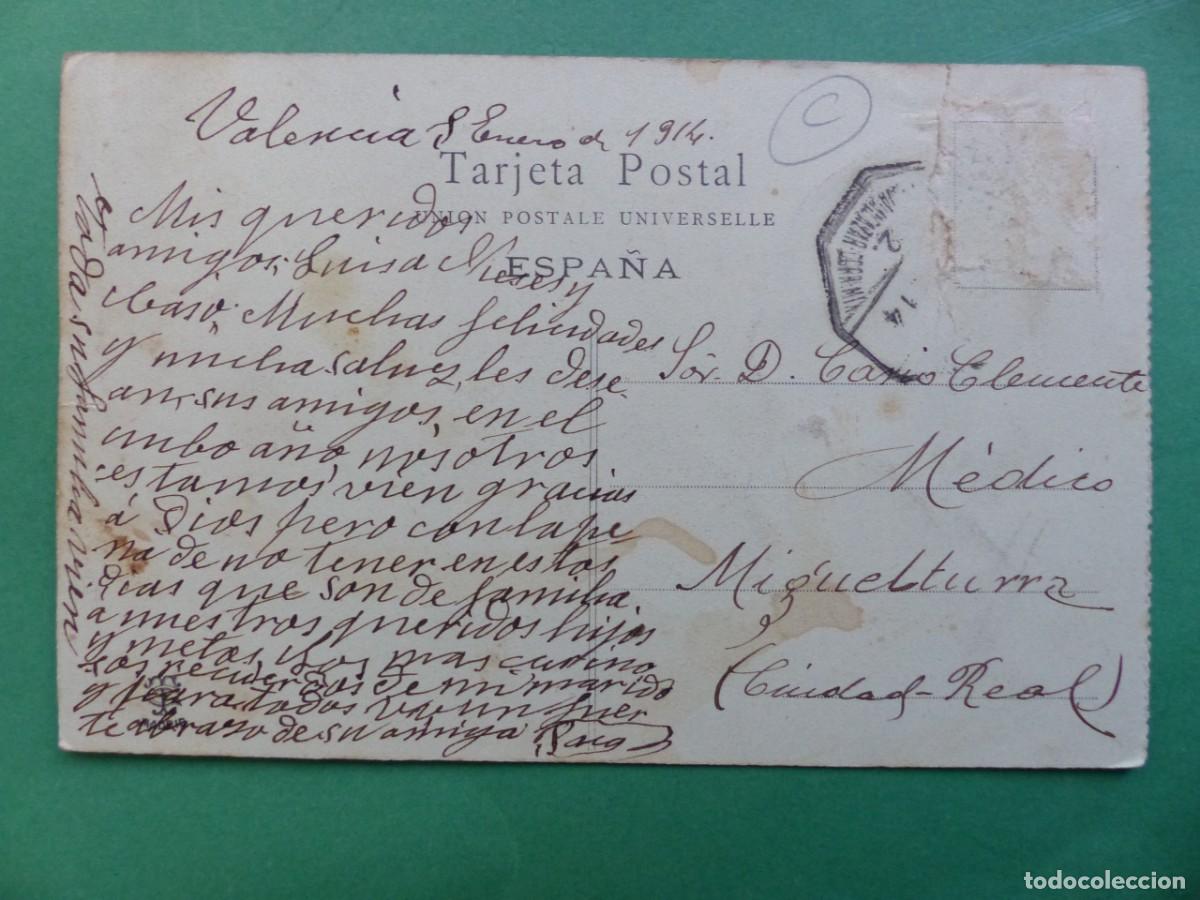 Valencia 8 Enero de 1914.
C
Tarjeta Postal
UNION POSTALE UNIVERSELLE
ESPAÑA
2.
14
Mis querido
amigos; Luisa y
Muchas felicidades
y mucha salud, les dese
an, sus amigos, en el
nubo año, nosotros
estamos vien gracias
á Dios pero con la pe
na de no tener en estos
dias que son de familia.
a nuestros queridos hijos
y nietos
sos recuerdos de mi marido
y para todos va un fuer
te abrazo de su amiga
Sór. D. Clemente
Médico
Miguelturra
(Ciudad-Real)
todocoleccion